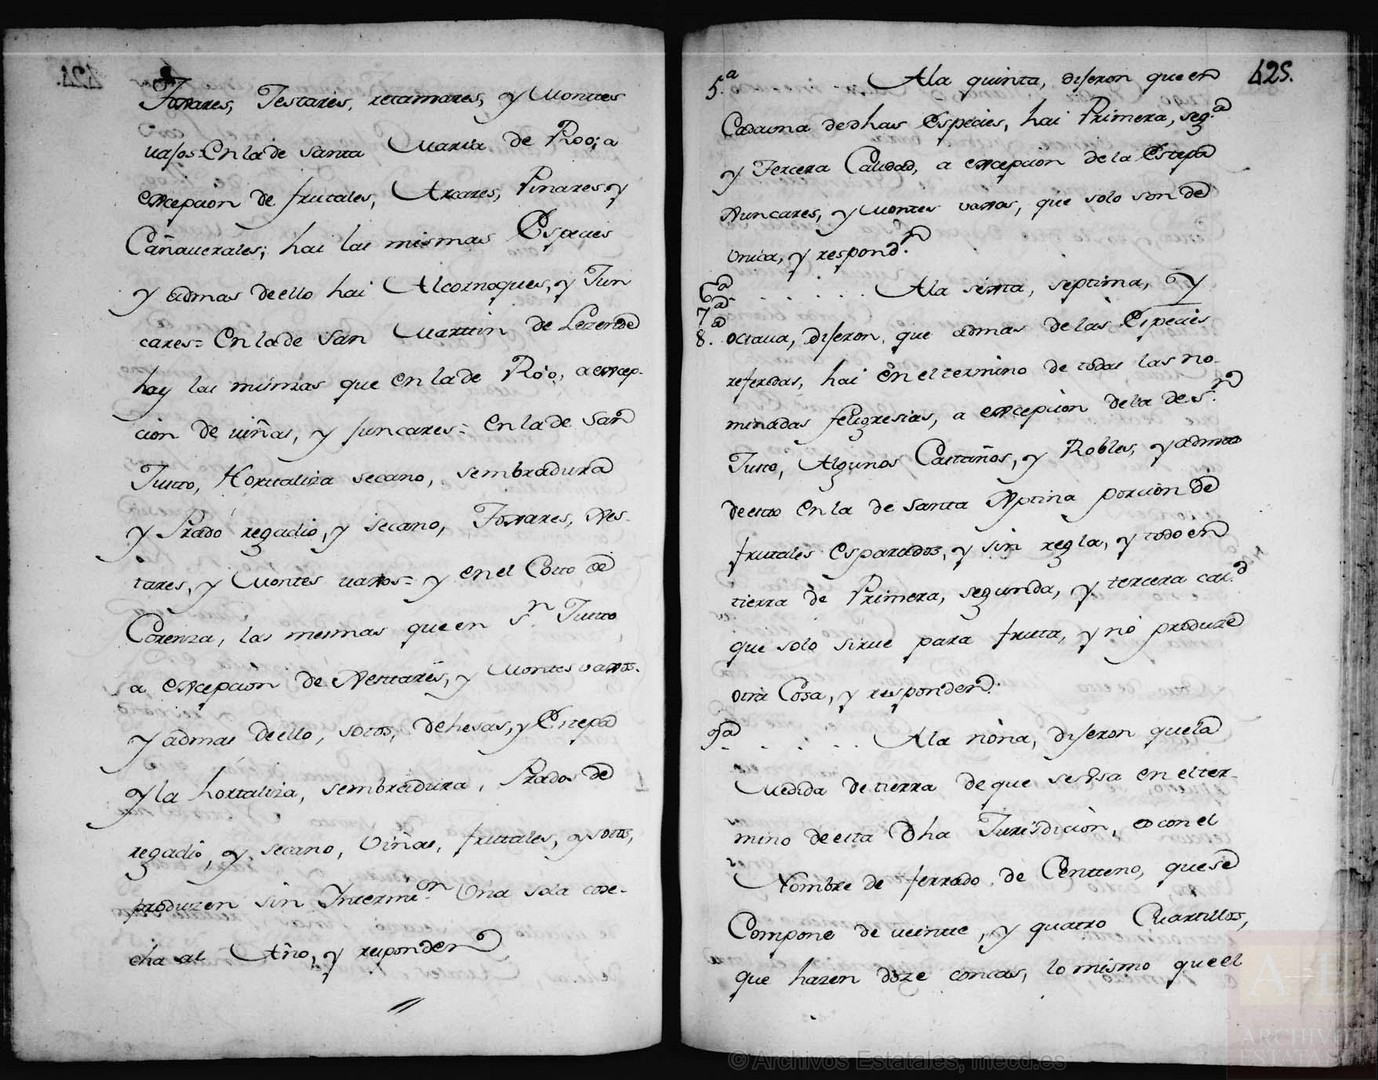 Toxares, Testares, retamares, y Montes
vajos = En la de Santa Maria de Roo; a
excepcion de frutales, Arcares, Pinares, y
Cañaverales; hai las mismas Especies
y admas de ello hai Alcornoques, y Jun
cares = En la de San Martin de Lezende
hay las mismas que en la de Roo, a excep-
cion de viñas, y juncares = En la de San
Justo, Hortaliza secano, sembradura
y Prado regadio, y secano, Toxares, Nes-
tares, y Montes vaxos = y en el Coto de
Corenza, las mesmas que en Sn. Justo
a excepcion de Nestares, y Montes vaxos.
y admas de ello, sotos, dehesas, y Estepa
y la hortaliza, sembradura, Prados de
regadio, y secano, Viñas, frutales, y sotos,
produzen sin Intermion. Una sola cose-
cha al Año, y responden
425.
5.a A la quinta, dijeron que en
Cada una de dhas Especies, hai Primera, seg.a
y Tercera Calidad, a excepcion de la Estepa
Juncares, y Montes vaxos, que solo son de
Unica, y respond.n
6.a A la sexta, septima, y
7.a
8.a octava, dijeron, que admas de las Especies
referidas, hai en el termino de todas las no-
minadas feligresias, a excepcion de la de S.n
Justo, Algunos Castaños, y Robles, y admas
de esto en la de Santa Xptina porcion de
frutales esparados, y sin regla, y todo en
tierra de Primera, segunda, y tercera cali.d
que solo sirve para fruta, y no produze
otra Cosa, y responden.
9.a A la nona, dijeron que la
Medida de tierra de que se Usa en el ter-
mino de esta dha Jurisdicion, es con el
Nombre de ferrado de Centeno, que se
Compone de veinte, y quatro Quartillos,
que hazen doze concas, lo mismo que el
© Archivos Estatales, mecd.es
ARCHIVOS
ESTATALES